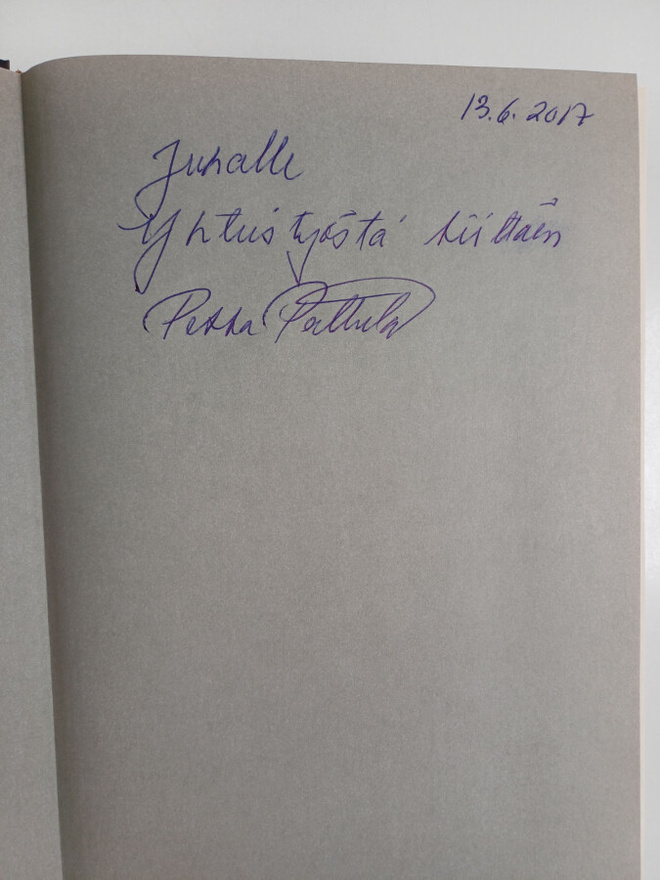 13.6.2017
Juhalle
Yhteistyöstä kiittäen
Pekka Pattula